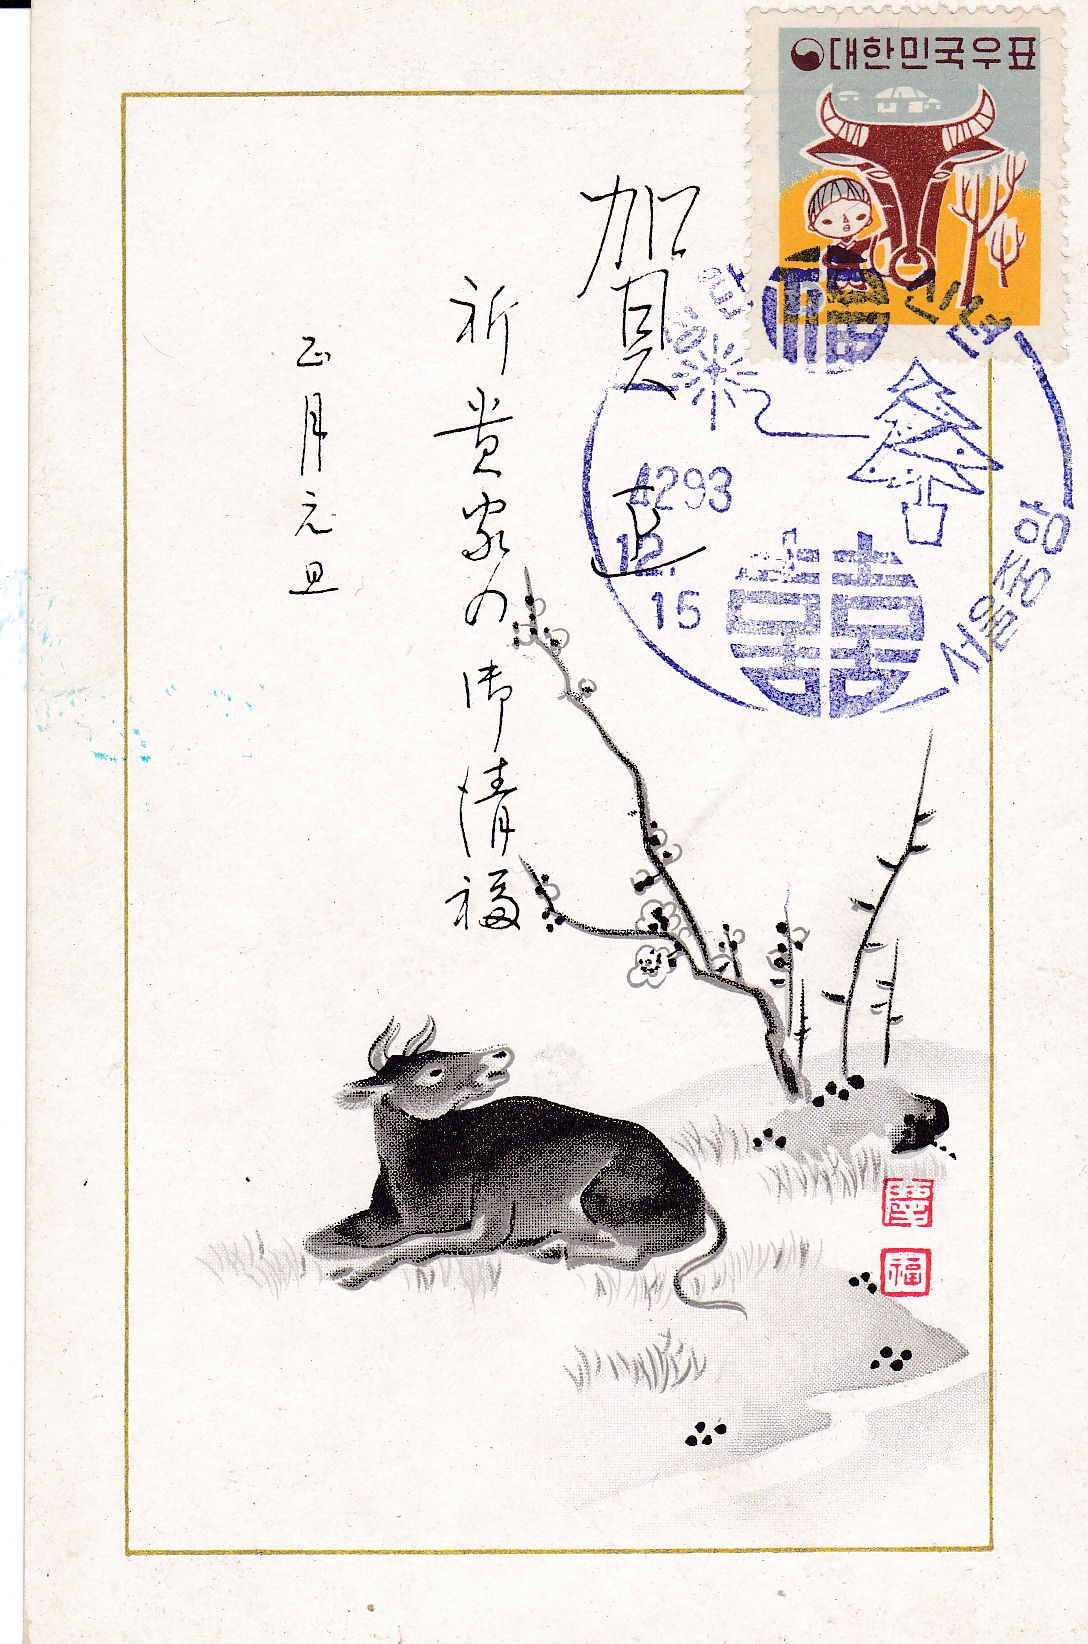 대한민국우표
賀正
祈貴家の御清福
正月元旦
福
신년
4293
12.
15
囍
서울중앙
福